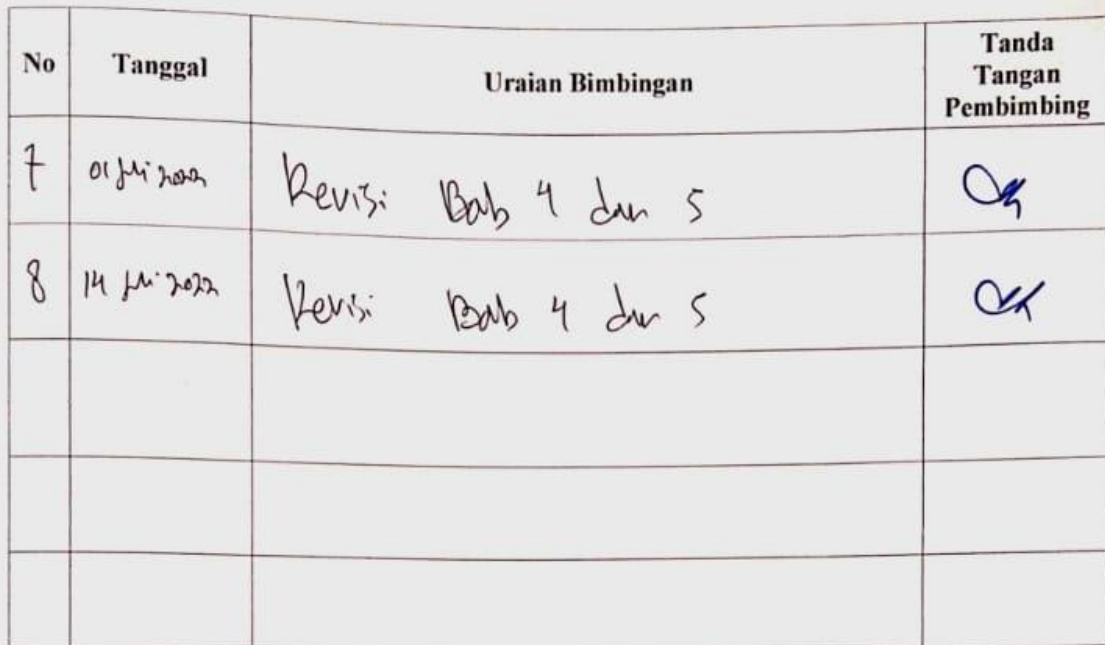 No Tanggal Uraian Bimbingan Tanda
Tangan
Pembimbing
7 01 Juli 2022 Revisi Bab 4 dan 5
8 14 Juli 2022 Revisi Bab 4 dan 5